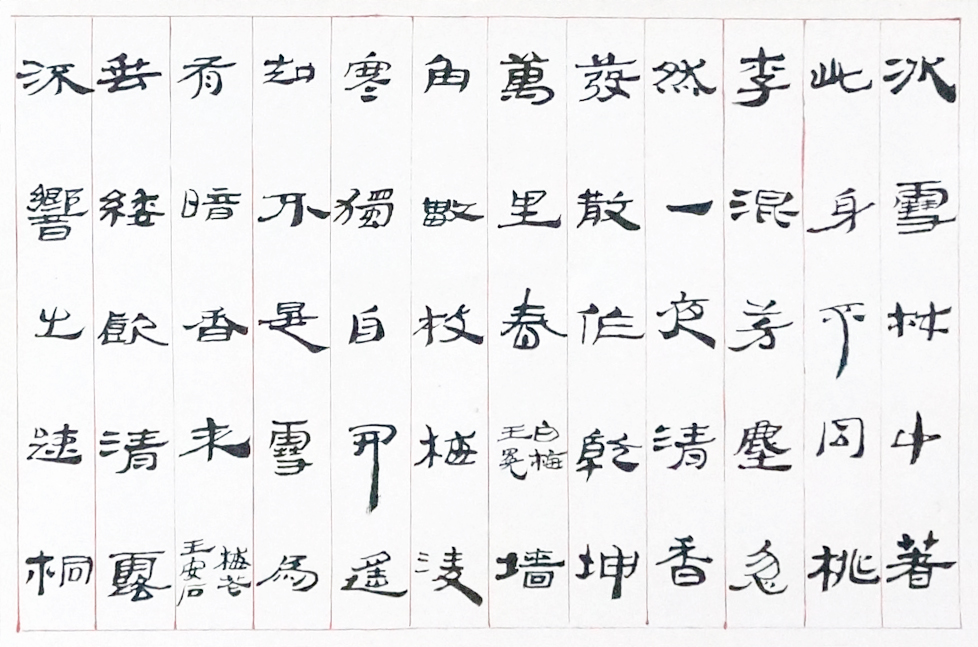 冰雪林中著
此身不同桃
李混芳塵忽
然一夜清香
發散作乾坤
萬里春白梅王冕墻
角數枝梅凌
寒獨自開遥
知不是雪為
有暗香來梅花王安石
垂緌飲清露
流響出疎桐